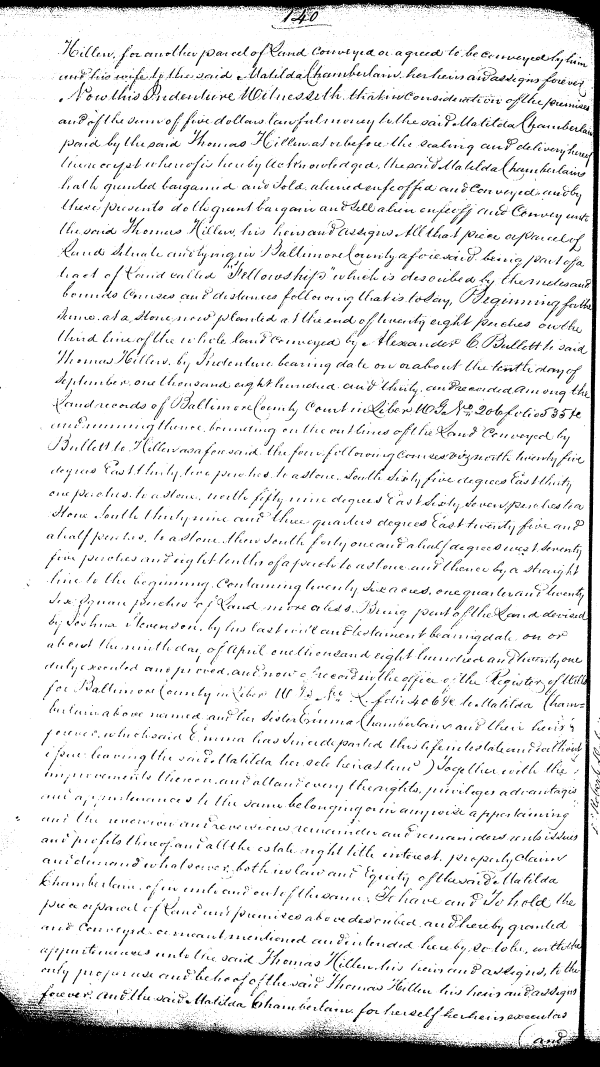 140
Hillen, for another parcel of Land conveyed or agreed to be conveyed by him
and his wife to the said Matilda Chamberlain her heirs and assigns forever
Now this Indenture Witnesseth, that in consideration of the premises
and of the sum of five dollars lawful money to the said Matilda Chamberlain
paid by the said Thomas Hillen at or before the sealing and delivery hereof
the receipt whereof is hereby acknowledged, the said Matilda Chamberlain
hath granted bargained and sold, aliened enfeoffed and conveyed and by
these presents doth grant bargain and sell alien enfeoff and convey unto
the said Thomas Hillen, his heirs and assigns All that piece or parcel of
Land situate and lying in Baltimore County aforesaid, being part of a
tract of Land called "Fellowship" which is described by the metes and
bounds courses and distances following that is to say, Beginning for the
same at a stone now planted at the end of twenty eight perches on the
third line of the whole land conveyed by Alexander C. Bullett to said
Thomas Hillen, by Indenture bearing date on or about the tenth day of
September, one thousand eight hundred and thirty, and recorded among the
Land records of Baltimore County Court in Liber W G No. 206 folio 535 &c
and running thence, bounding on the out lines of the Land conveyed by
Bullett to Hillen as aforesaid the four following courses viz north twenty five
degrees East thirty two perches, to a stone, South sixty five degrees East thirty
one perches, to a stone, north fifty nine degrees East sixty seven perches to a
stone South thirty nine and three quarters degrees East twenty five and
a half perches, to a stone, then South forty one and a half degrees west seventy
five perches and eight tenths of a perch to a stone and thence by a straight
line to the beginning, containing twenty six acres, one quarter and twenty
six square perches of Land more or less. Being part of the Land devised
by Joshua Stevenson, by his last will and testament bearing date on or
about the ninth day of April one thousand eight hundred and twenty one
duly executed and proved, and now of record in the office of the Register of Wills
for Baltimore County in Liber W B No. L folio 406 &c to Matilda Cham-
berlain above named and her sister Emma Chamberlain and their heirs
forever, which said Emma has since departed this life intestate and without
issue leaving the said Matilda her sole heir at law) Together with the
improvements thereon, and all and every the rights, privileges advantages
and appurtenances to the same belonging or in any wise appertaining
and the reversion and reversions, remainder and remainders rents issues
and profits thereof and all the estate right title interest, property claim
and demand whatsoever, both in law and Equity of the said Matilda
Chamberlain, of in unto and out of the same, To have and To hold the
piece or parcel of Land and premises above described, and hereby granted
and conveyed or meant mentioned and intended hereby, so to be, with the
appurtenances unto the said Thomas Hillen, his heirs and assigns, to the
only proper use and behoof of the said Thomas Hillen his heirs and assigns
forever. and the said Matilda Chamberlain for herself her heirs executors
(and